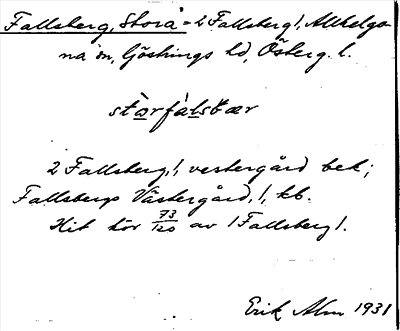 Fallsberg, Stora = 2 Fallsberg /, Allhelgo-
na sn, Göstrings hd, Österg. l.
stōrfàlsbær
2 Fallsberg, /, vestergård bek;
Fallsbergs Västergård, /, kb.
Hit hör 73/120 av / Fallsberg /.
Erik Alm 1931